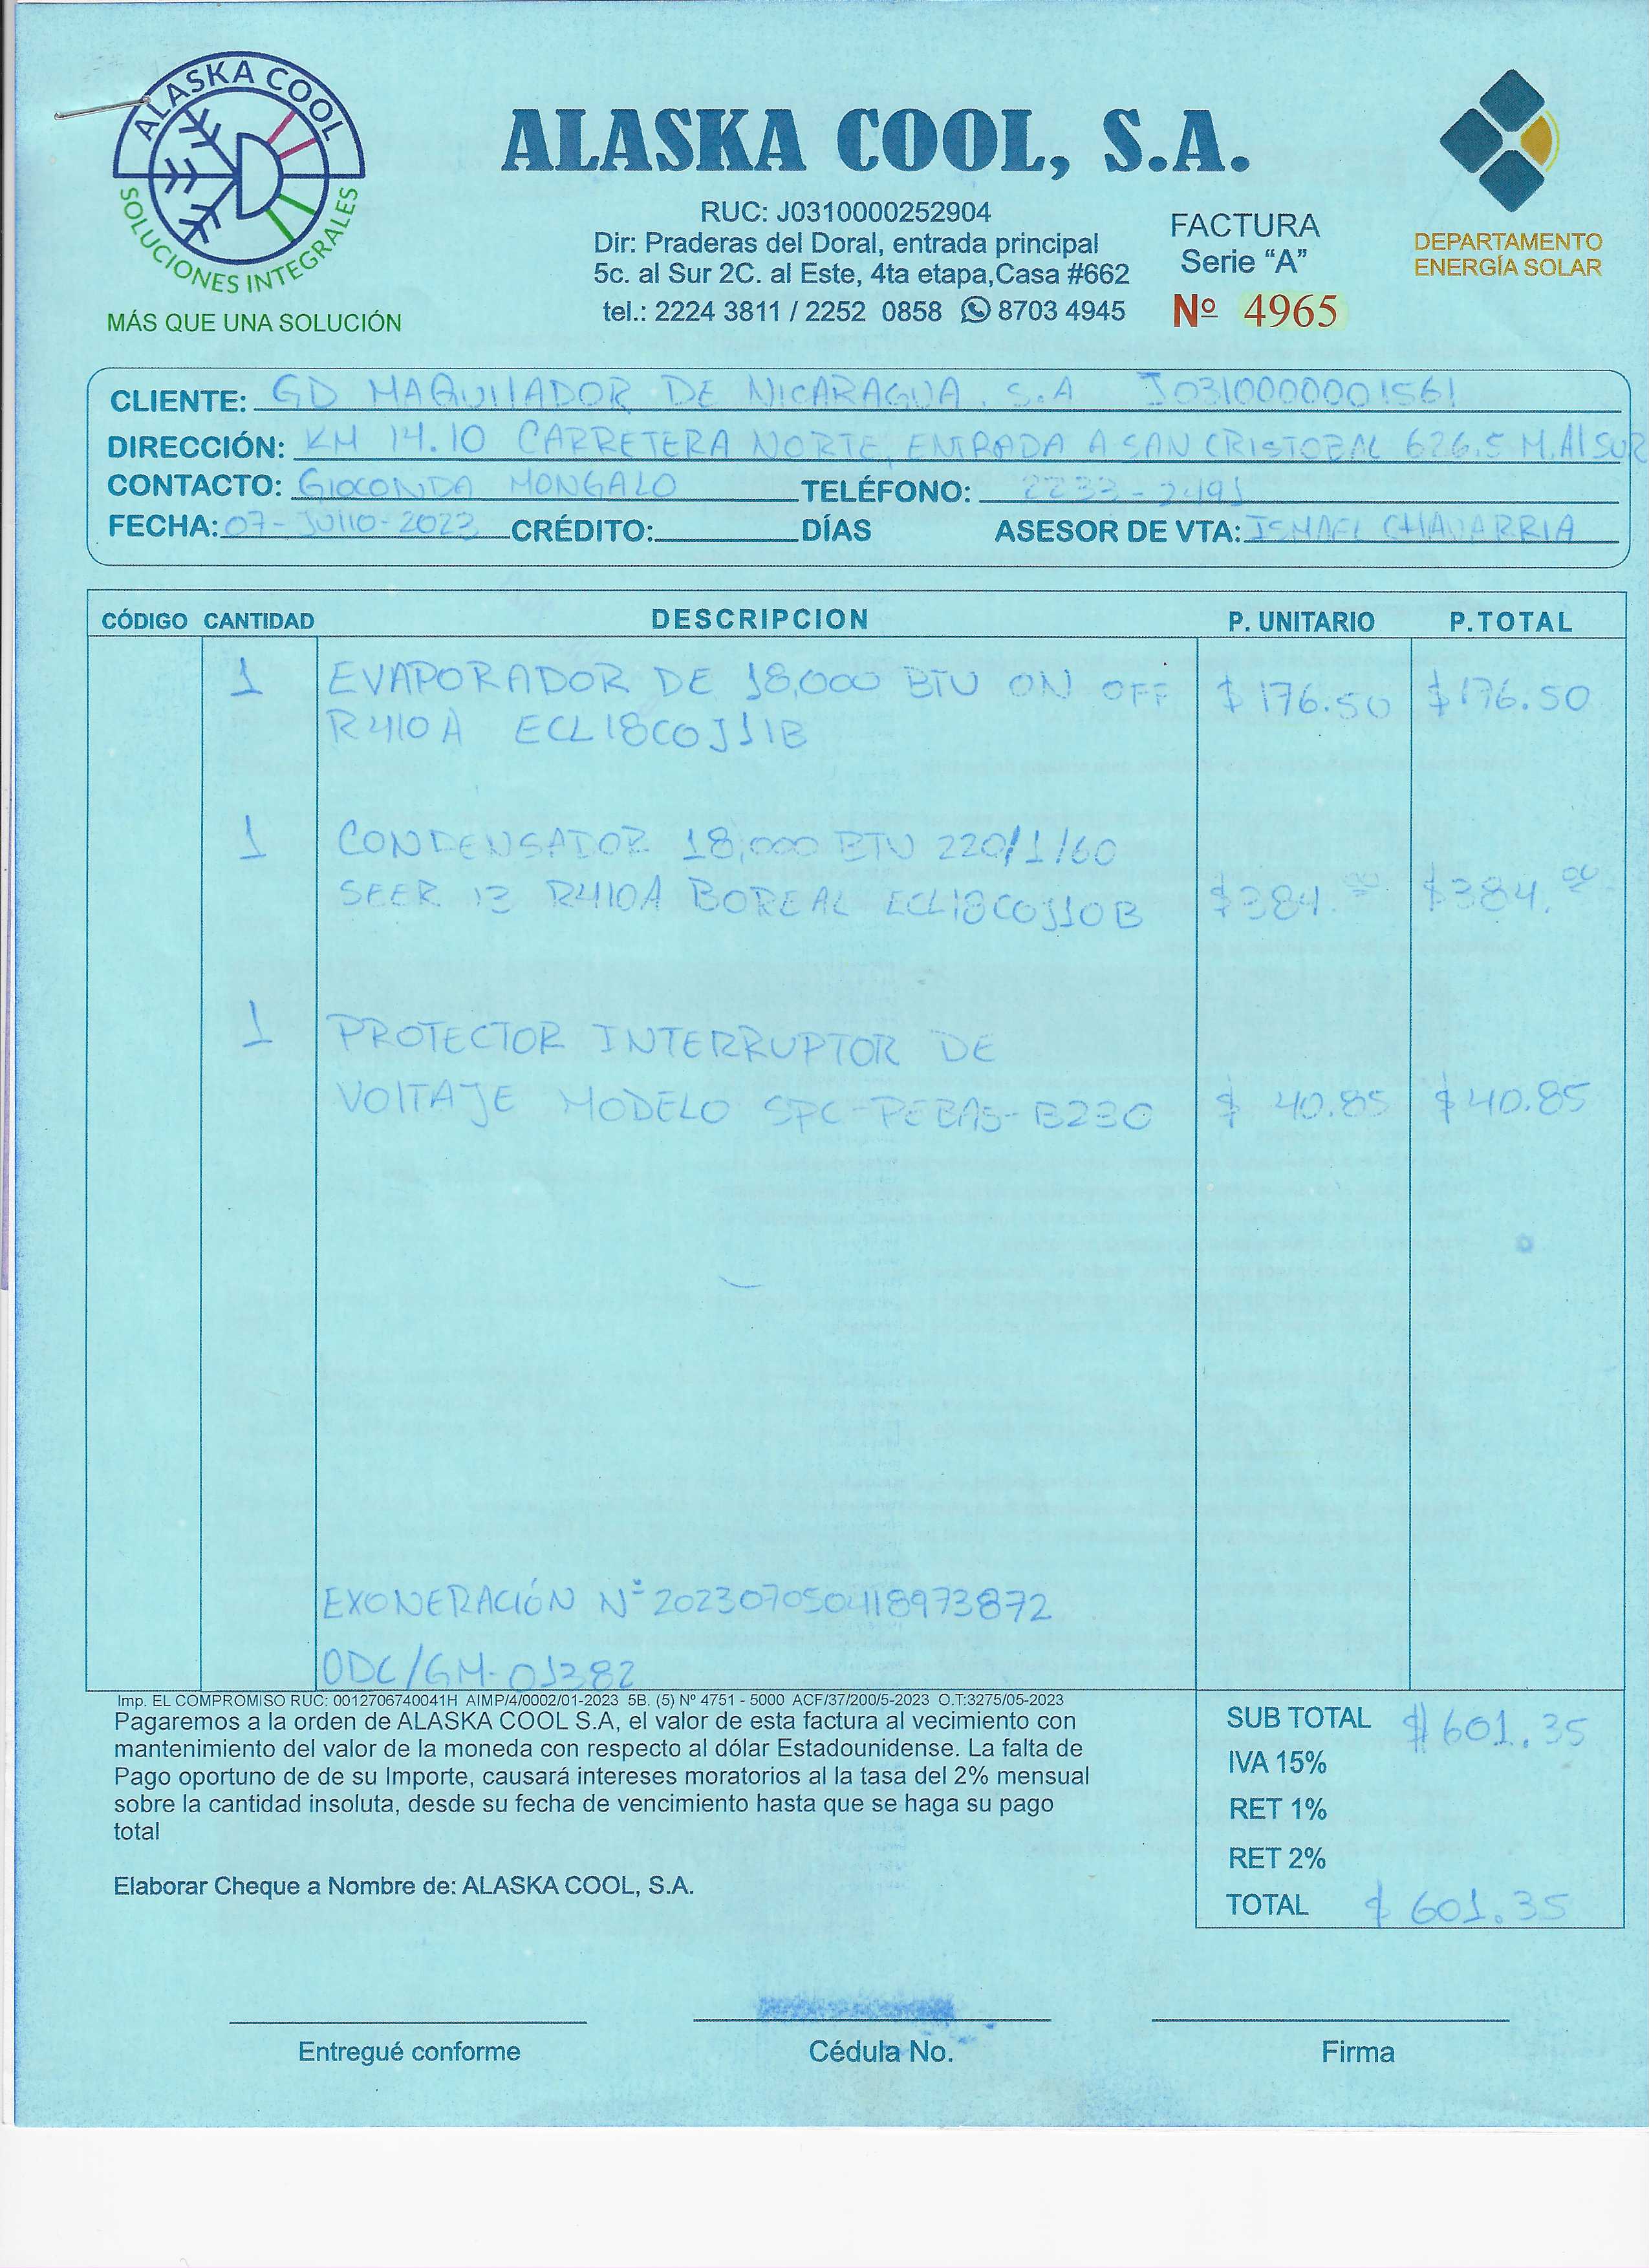 ALASKA COOL
SOLUCIONES INTEGRALES
MÁS QUE UNA SOLUCIÓN
ALASKA COOL, S.A.
RUC: J0310000252904
Dir: Praderas del Doral, entrada principal
5c. al Sur 2C. al Este, 4ta etapa,Casa #662
tel.: 2224 3811 / 2252 0858 8703 4945
FACTURA
Serie “A”
Nº 4965
DEPARTAMENTO
ENERGÍA SOLAR
CLIENTE: GD MAQUILADOR DE NICARAGUA. S.A J0310000001561
DIRECCIÓN: KM 14.10 CARRETERA NORTE, ENTRADA A SAN CRISTOBAL 626.5 M.Al SUR
CONTACTO: GIOCONDA MONGALO TELÉFONO: 2233-2491
FECHA: 07-JUlIO-2023 CRÉDITO: DÍAS ASESOR DE VTA: ISMAEL CHAVARRIA
CÓDIGO CANTIDAD DESCRIPCION P. UNITARIO P.TOTAL
1 EVAPORADOR DE 18,000 BTU ON OFF $176.50 $176.50
R410A ECL18COJ11B
1 CONDENSADOR 18,000 BTU 220/1/60
SEER 13 R410A BOREAL ECL18COJ10B $384.00 $384.00
1 PROTECTOR INTERRUPTOR DE
VOlTAJE MODELO SPC-PEBA5-B230 $ 40.85 $40.85
EXONERACIÓN Nº 2023070504118973872
ODC/GM-01382
Imp. EL COMPROMISO RUC: 0012706740041H AIMP/4/0002/01-2023 5B. (5) Nº 4751 - 5000 ACF/37/200/5-2023 O.T:3275/05-2023
Pagaremos a la orden de ALASKA COOL S.A, el valor de esta factura al vecimiento con
mantenimiento del valor de la moneda con respecto al dólar Estadounidense. La falta de
Pago oportuno de de su Importe, causará intereses moratorios al la tasa del 2% mensual
sobre la cantidad insoluta, desde su fecha de vencimiento hasta que se haga su pago
total
Elaborar Cheque a Nombre de: ALASKA COOL, S.A.
SUB TOTAL $601.35
IVA 15%
RET 1%
RET 2%
TOTAL $ 601.35
Entregué conforme Cédula No. Firma